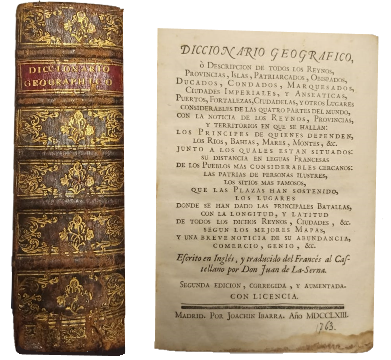 DICCIONARIO
GEOGRAPHICO
DICCIONARIO GEOGRAFICO,
ò DESCRIPCION DE TODOS LOS REYNOS,
PROVINCIAS, ISLAS, PATRIARCADOS, OBISPADOS,
DUCADOS, CONDADOS, MARQUESADOS,
CIUDADES IMPERIALES, Y ANSEATICAS,
PUERTOS, FORTALEZAS, CIUDADELAS, Y OTROS LUGARES
CONSIDERABLES DE LAS QUATRO PARTES DEL MUNDO,
CON LA NOTICIA DE LOS REYNOS, PROVINCIAS,
Y TERRITORIOS EN QUE SE HALLAN:
LOS PRINCIPES DE QUIENES DEPENDEN,
LOS RIOS, BAHIAS, MARES, MONTES, &c.
JUNTO A LOS QUALES ESTAN SITUADOS:
SU DISTANCIA EN LEGUAS FRANCESAS
DE LOS PUEBLOS MAS CONSIDERABLES CERCANOS:
LAS PATRIAS DE PERSONAS ILUSTRES,
LOS SITIOS MAS FAMOSOS,
QUE LAS PLAZAS HAN SOSTENIDO,
LOS LUGARES
DONDE SE HAN DADO LAS PRINCIPALES BATALLAS,
CON LA LONGITUD, Y LATITUD
DE TODOS LOS DICHOS REYNOS, CIUDADES, &c.
SEGUN LOS MEJORES MAPAS,
Y UNA BREVE NOTICIA DE SU ABUNDANCIA,
COMERCIO, GENIO, &c.
Escrito en Inglés, y traducido del Francés al Cas-
tellano por Don Juan de La-Serna.
SEGUNDA EDICION, CORREGIDA, Y AUMENTADA.
CON LICENCIA.
MADRID. POR JOACHIN IBARRA. Año MDCCLXIII.
1763.